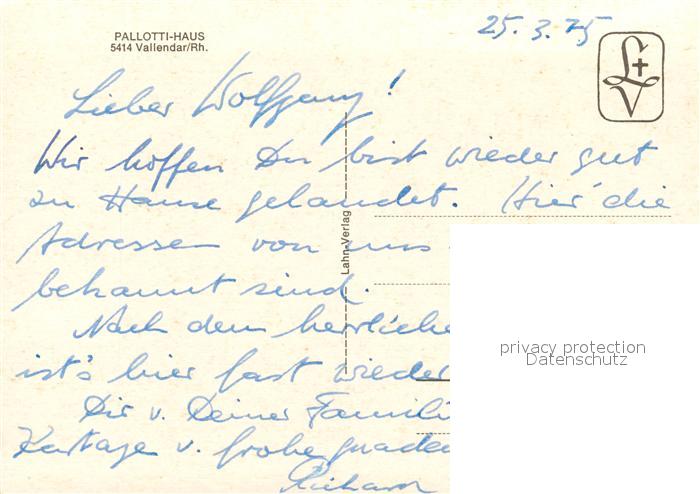 PALLOTTI-HAUS
5414 Vallendar/Rh.
25. 3. 75
LV
Lieber Wolfgang!
Wir hoffen Du bist wieder gut
zu Hause gelandet. Hier die
Adressen von uns
bekannt sind.
Nach dem herrliche
ist's hier fast wieder
Dir v. Deiner Famili
Kartage v. frohe gnaden
Richard
Lahn-Verlag
privacy protection
Datenschutz